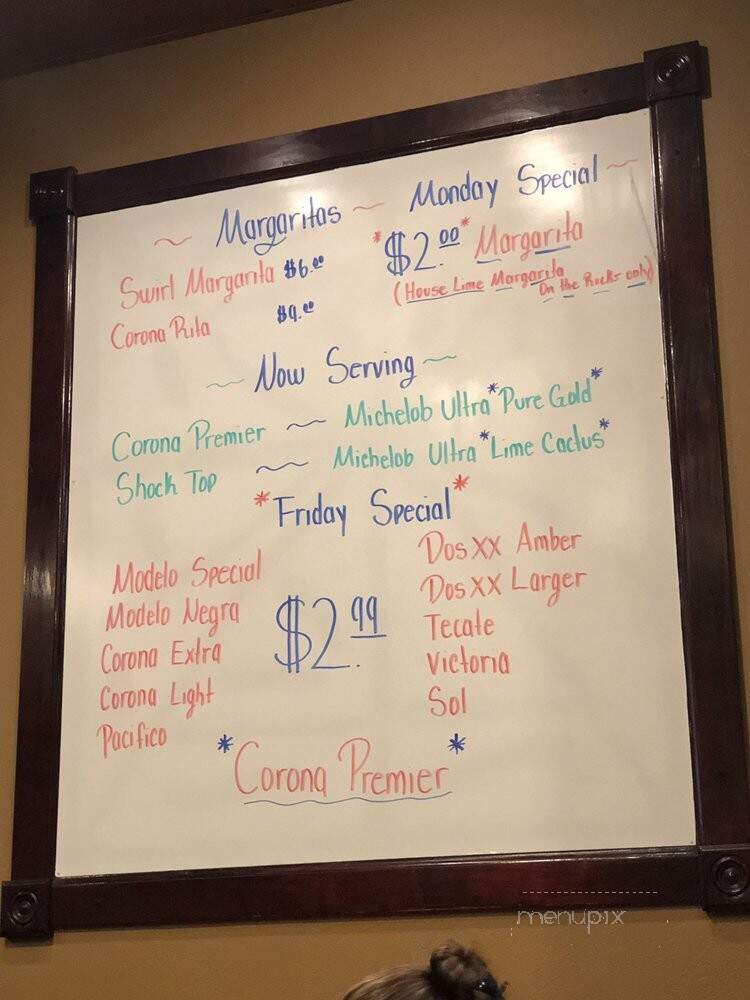 ~ Margaritas ~
Swirl Margarita $6.00
Corona Rita $9.00
Monday Special ~
*$2.00* Margarita
(House Lime Margarita
On the Rocks only)
~ Now Serving ~
Corona Premier ~ Michelob Ultra *Pure Gold*
Shock Top ~ Michelob Ultra *Lime Cactus*
*Friday Special*
Modelo Special
Modelo Negra
Corona Extra
Corona Light
Pacifico
$2.99
Dos XX Amber
Dos XX Larger
Tecate
Victoria
Sol
*Corona Premier*
menupix